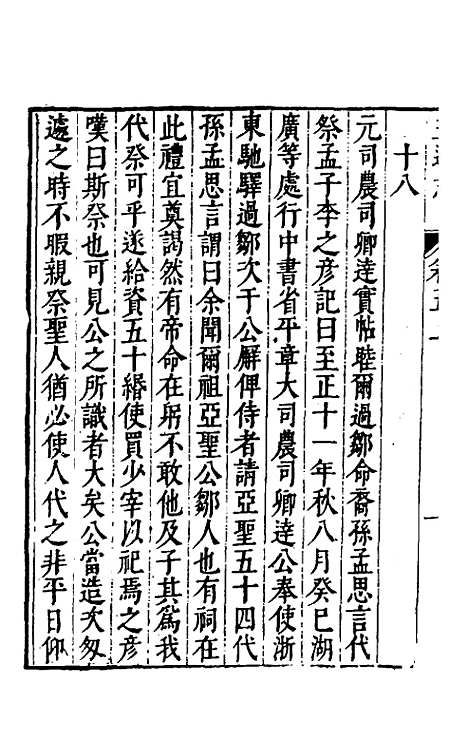 十八
元司農司卿達實帖睦爾過鄒命裔孫孟思言代
祭孟子李之彦記曰至正十一年秋八月癸巳湖
廣等處行中書省平章大司農司卿達公奉使浙
東馳驛過鄒次于公廨俾侍者請亞聖五十四代
孫孟思言謂曰余聞爾祖亞聖公鄒人也有祠在
此禮宜奠謁然有帝命在躬不敢他及子其爲我
代祭可乎遂給資五十緡使買少宰以祀焉之彦
嘆曰斯祭也可見公之所識者大矣公當造次匆
遽之時不暇親祭聖人猶必使人代之非平日仰